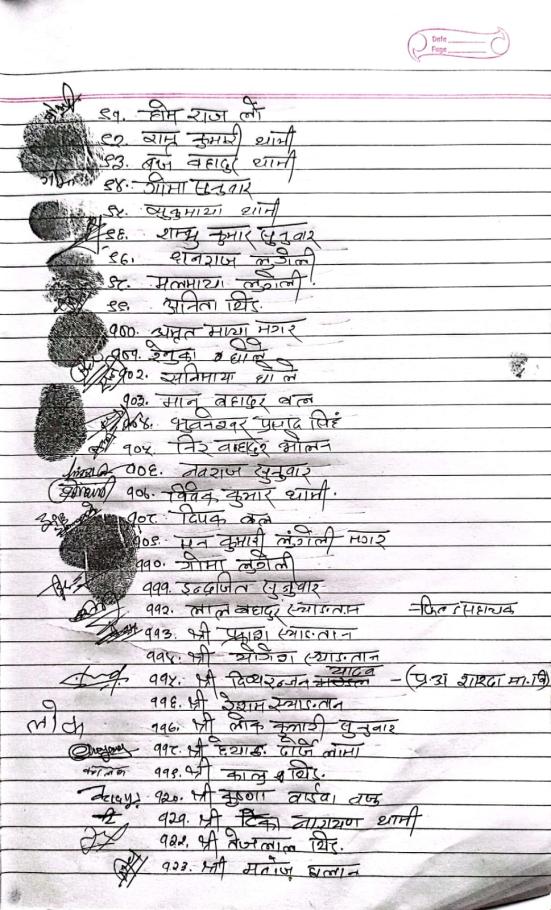 Date
Page
९१. होम राज लो
९२. राम कुमारी थामी
९३. बज्र बहादुर थामी
९४. गोमा सुनुवार
९५. सुकुमाया थामी
९६. शम्भु कुमार सुनुवार
९७. धनराज लुंगेली
९८. मलमाया लुंगेली
९९. अनिता थिङ
१००. अमृत माया मगर
१०१. रेनुका घले
१०२. सनिमाया घोले
१०३. मान बहादुर बल
१०४. भुवनेश्वर प्रसाद सिहं
१०५. निर बहादुर मोलन
१०६. नवराज सुनुवार
१०७. विवेक कुमार थामी
१०८. दिपक बल
१०९. मन कुमारी लुंगेली मगर
११०. गोमा लुंगेली
१११. इन्द्रजित सुनुवार
११२. लाल बहादुर स्याङतान
११३. श्री प्रकाश स्याङतान
११४. श्री योगेश स्याङतान
यादव
११५. श्री दिव्यरन्जन - (प्र.अ शारदा मा.वि)
११६. श्री रेशम स्याङतान
लोक ११७. श्री लोक कुमारी सुनुवार
११८. श्री दोर्जे लामा
११९. श्री कालु थिङ
१२०. श्री
१२१. श्री टिका नारायण थामी
१२२. श्री तेजलाल थिङ
१२३. श्री मनोज घलान